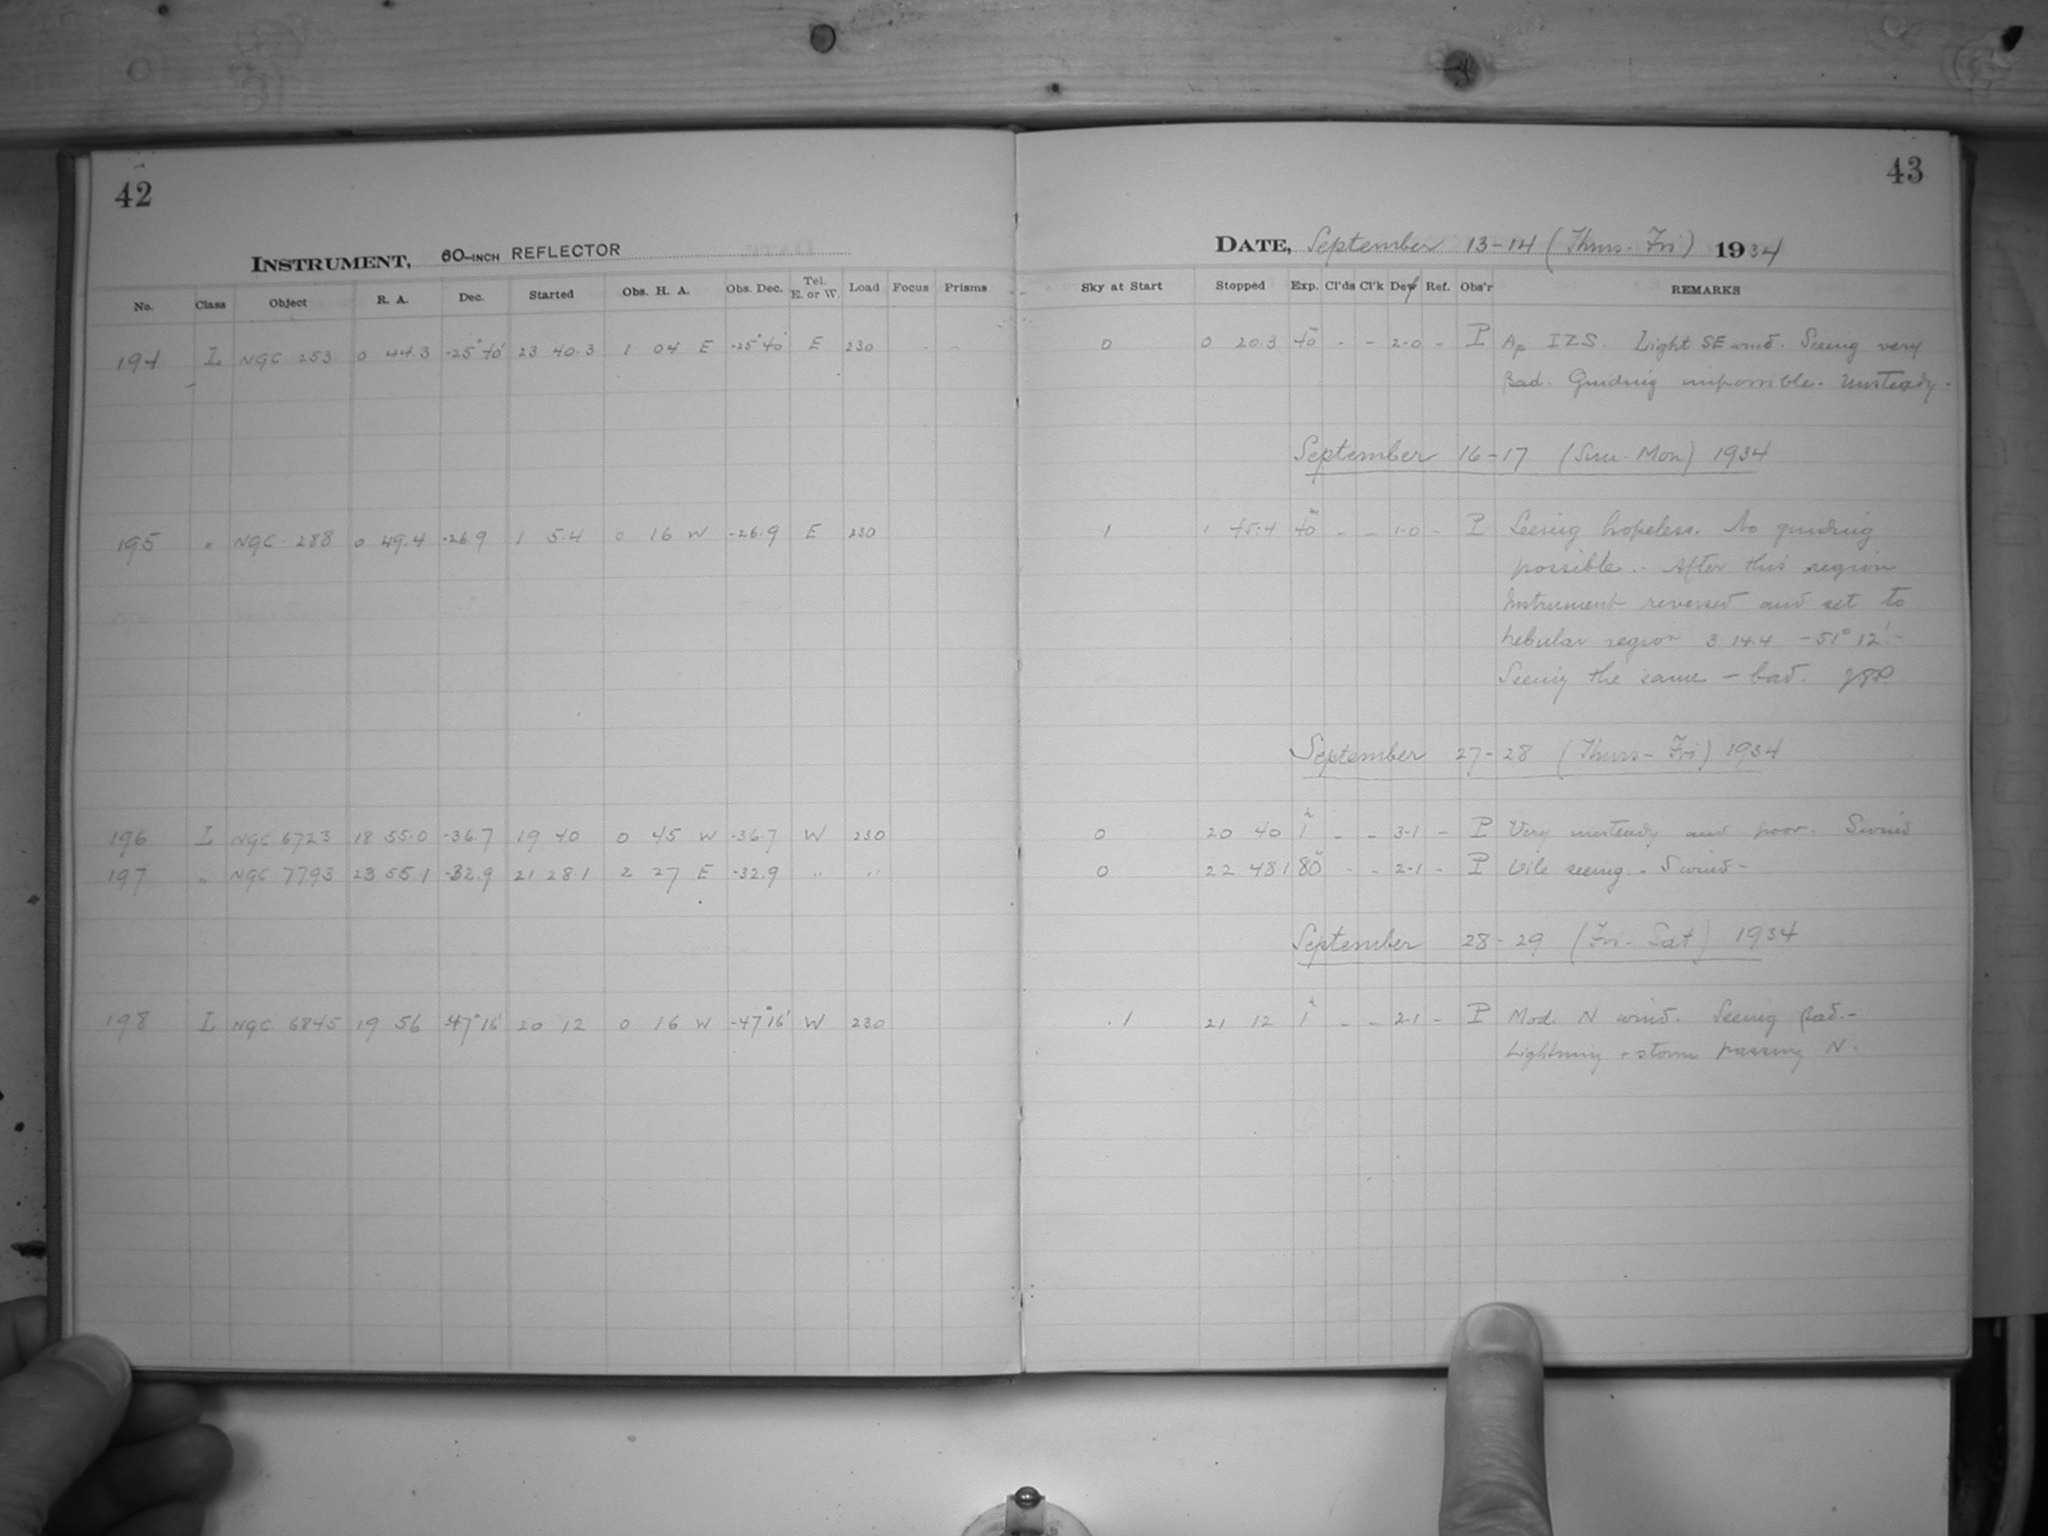 42
INSTRUMENT, 60-INCH REFLECTOR
No. Class Object R. A. Dec. Started Obs. H. A. Obs. Dec. Tel. E. or W. Load Focus Prisms
194 L NGC 253 0 44.3 -25°40' 23 40.3 1 04 E -25°40' E 230 - -
195 " NGC 288 0 49.4 -26.9 1 5.4 0 16 W -26.9 E 230
196 L NGC 6723 18 55.0 -36.7 19 40 0 45 W -36.7 W 230
197 " NGC 7793 23 55.1 -32.9 21 28.1 2 27 E -32.9 " "
198 L NGC 6845 19 56 -47°16' 20 12 0 16 W -47°16' W 230
43
DATE, September 13-14 (Thurs-Fri) 1934
Sky at Start Stopped Exp. Cl'ds Cl'k Dew Ref. Obs'r REMARKS
0 0 20.3 40m - - 2-0 - P Ap IZS. Light SE wind. Seeing very
Bad. Guiding impossible. Unsteady.
September 16-17 (Sun-Mon) 1934
1 1 45.4 40m - - 1-0 - P Seeing hopeless. No guiding
possible. - After this region
Instrument reversed and set to
nebular region 3 14.4 -51°12' -
Seeing the same - bad.
September 27-28 (Thurs-Fri) 1934
0 20 40 1h - - 3-1 - P Very unsteady and poor. S wind
0 22 48.1 80m - - 2-1 - P Vile seeing - S wind -
September 28-29 (Fri-Sat) 1934
.1 21 12 1h - - 2-1 - P Mod. N wind. Seeing Bad. -
Lightning + storm passing N.